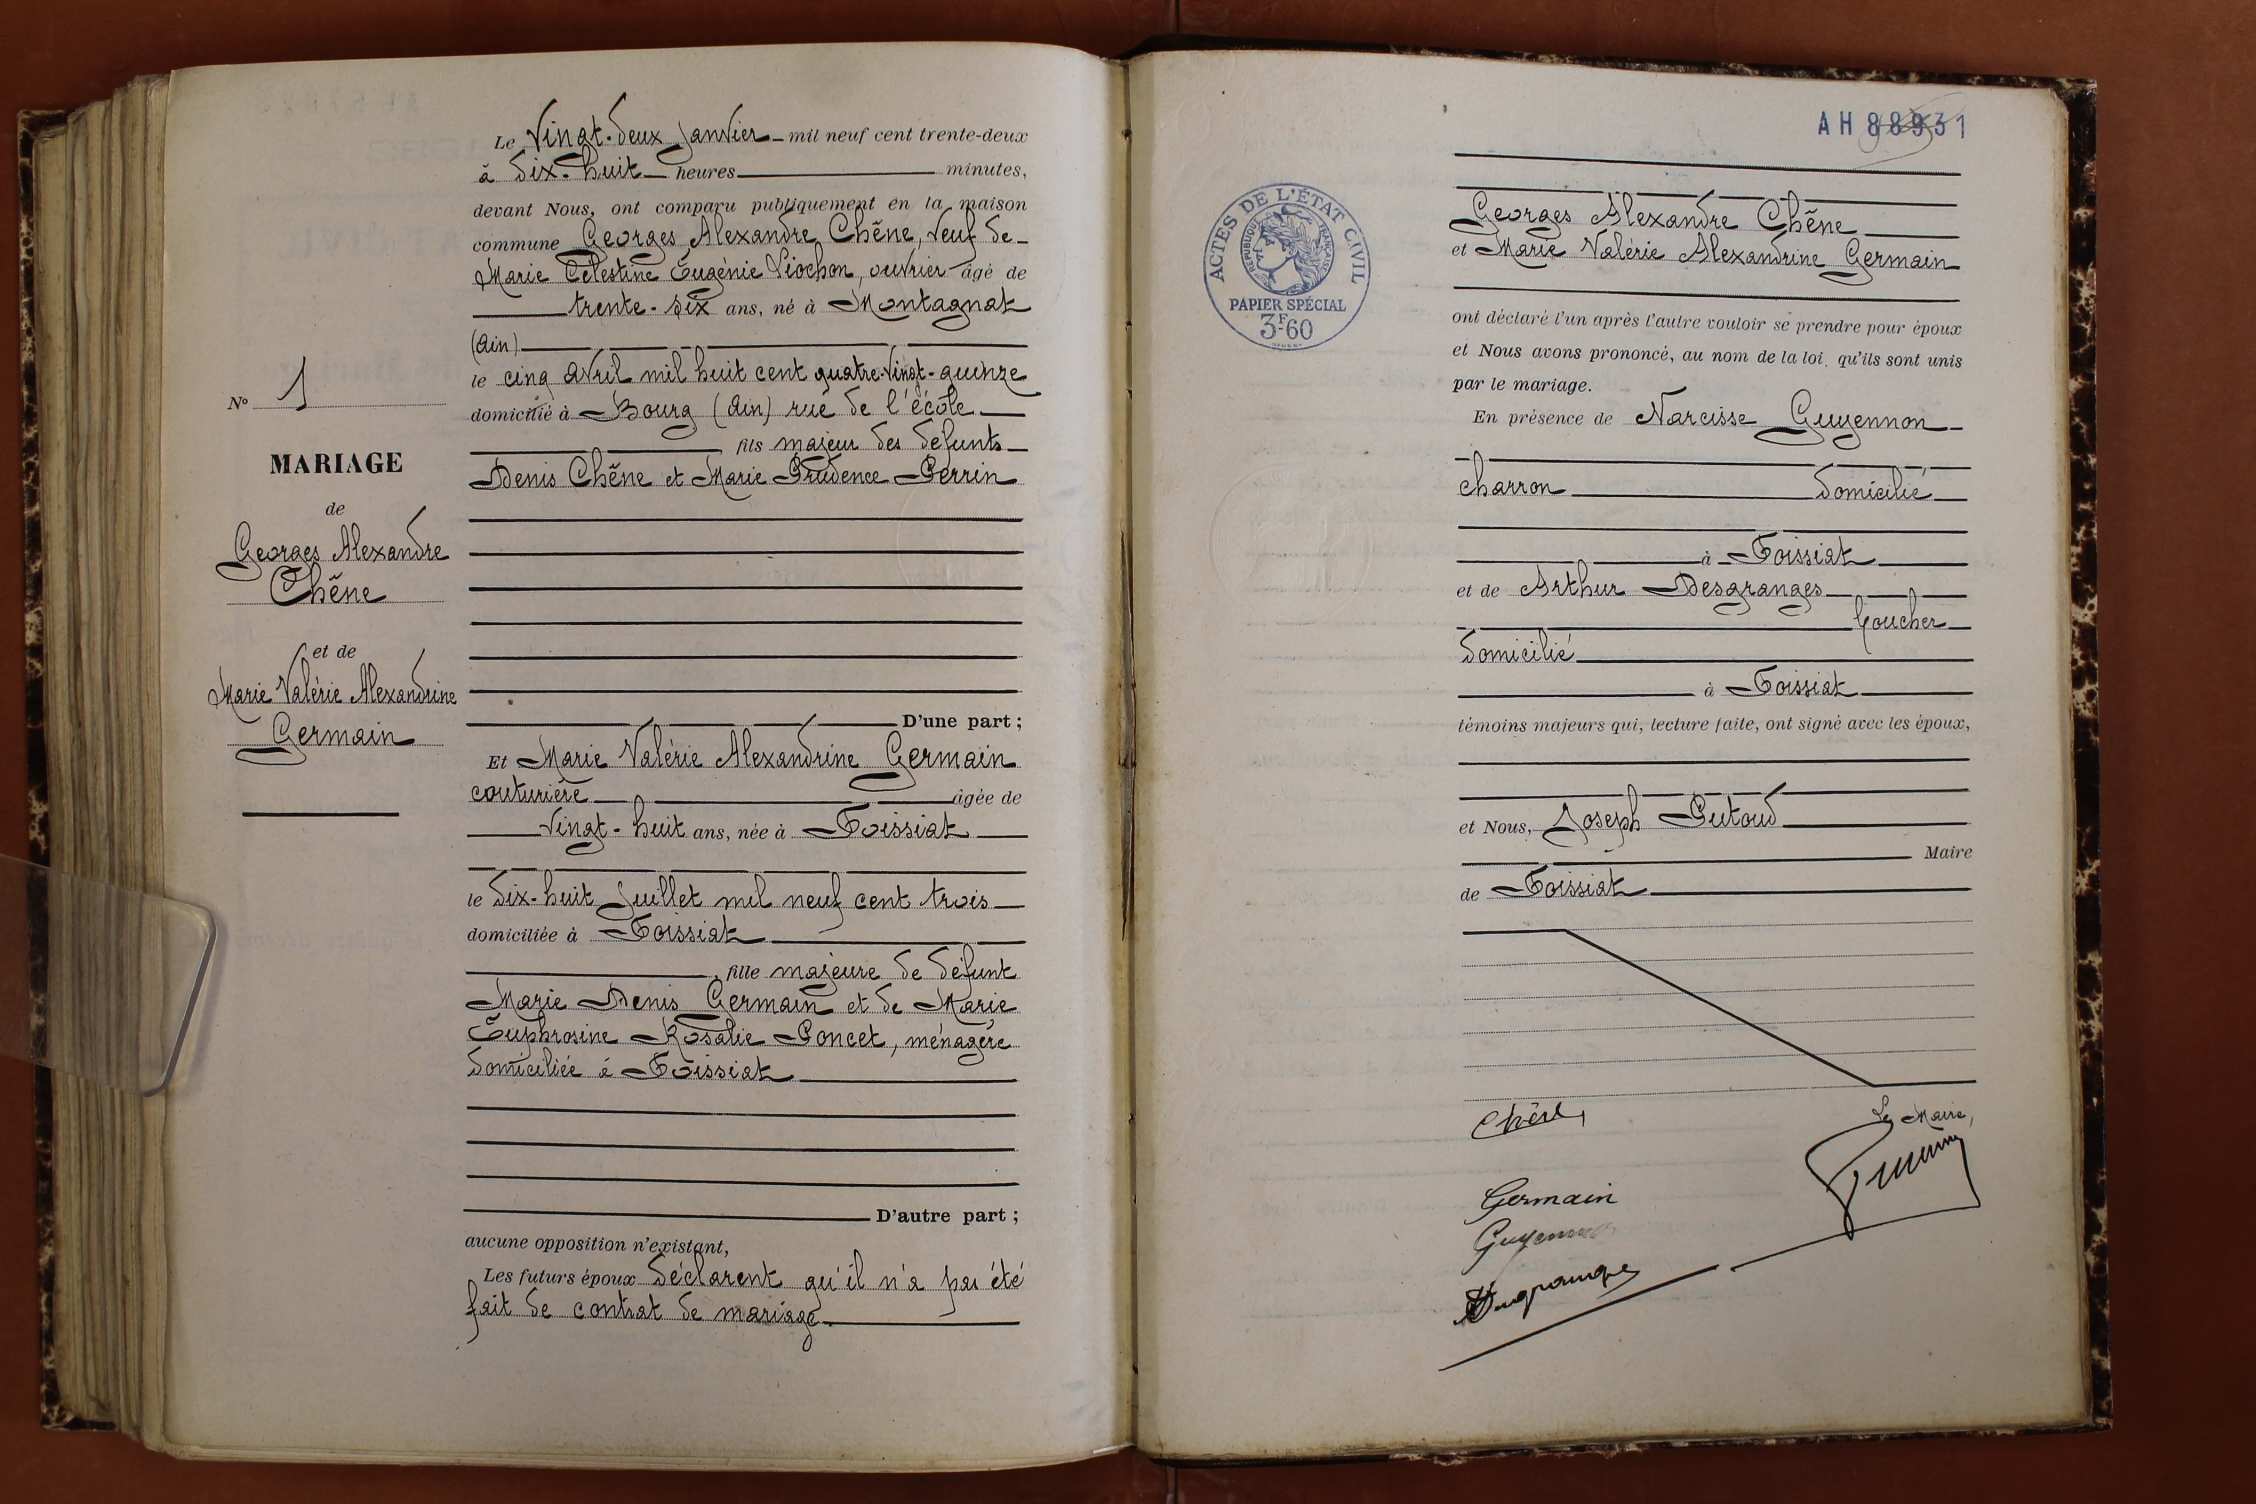 Le vingt-deux janvier mil neuf cent trente-deux
à dix-huit heures minutes,
devant Nous, ont comparu publiquement en la maison
commune Georges Alexandre Chêne, veuf de
Marie Célestine Eugénie Viochon, ouvrier âgé de
trente-six ans, né à Montagnat
(Ain)
le cinq avril mil huit cent quatre-vingt-quinze
domicilié à Bourg (Ain) rue de l'école
fils majeur des défunts
Denis Chêne et Marie Prudence Perrin
D'une part ;
Et Marie Valérie Alexandrine Germain
couturière âgée de
vingt-huit ans, née à Foissiat
le dix-huit juillet mil neuf cent trois
domiciliée à Foissiat
fille majeure de défunt
Marie Denis Germain et de Marie
Euphrosine Rosalie Poncet, ménagère
domiciliée à Foissiat
D'autre part ;
aucune opposition n'existant,
Les futurs époux déclarent qu'il n'a pas été
fait de contrat de mariage
N° 1
MARIAGE
de
Georges Alexandre
Chêne
et de
Marie Valérie Alexandrine
Germain
AH 88931
ACTES DE L'ÉTAT CIVIL
RÉPUBLIQUE FRANÇAISE
PAPIER SPÉCIAL
3F.60
Georges Alexandre Chêne
et Marie Valérie Alexandrine Germain
ont déclaré l'un après l'autre vouloir se prendre pour époux
et Nous avons prononcé, au nom de la loi, qu'ils sont unis
par le mariage.
En présence de Narcisse Guyennon
charron domicilié
à Foissiat
et de Arthur Desgranges
boucher
domicilié
à Foissiat
témoins majeurs qui, lecture faite, ont signé avec les époux,
et Nous, Joseph Putoud
Maire
de Foissiat
Chêne
Le Maire,
Germain
Guyennon
Desgranges